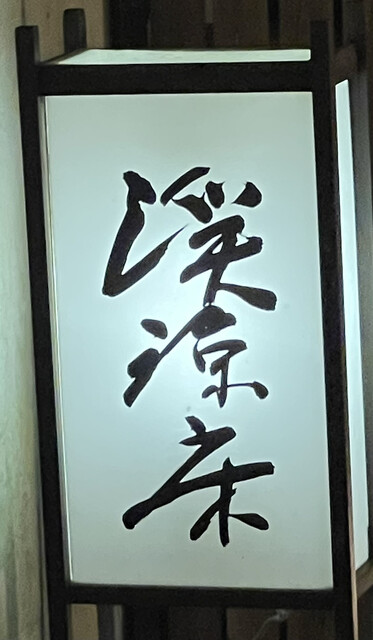 渓涼床